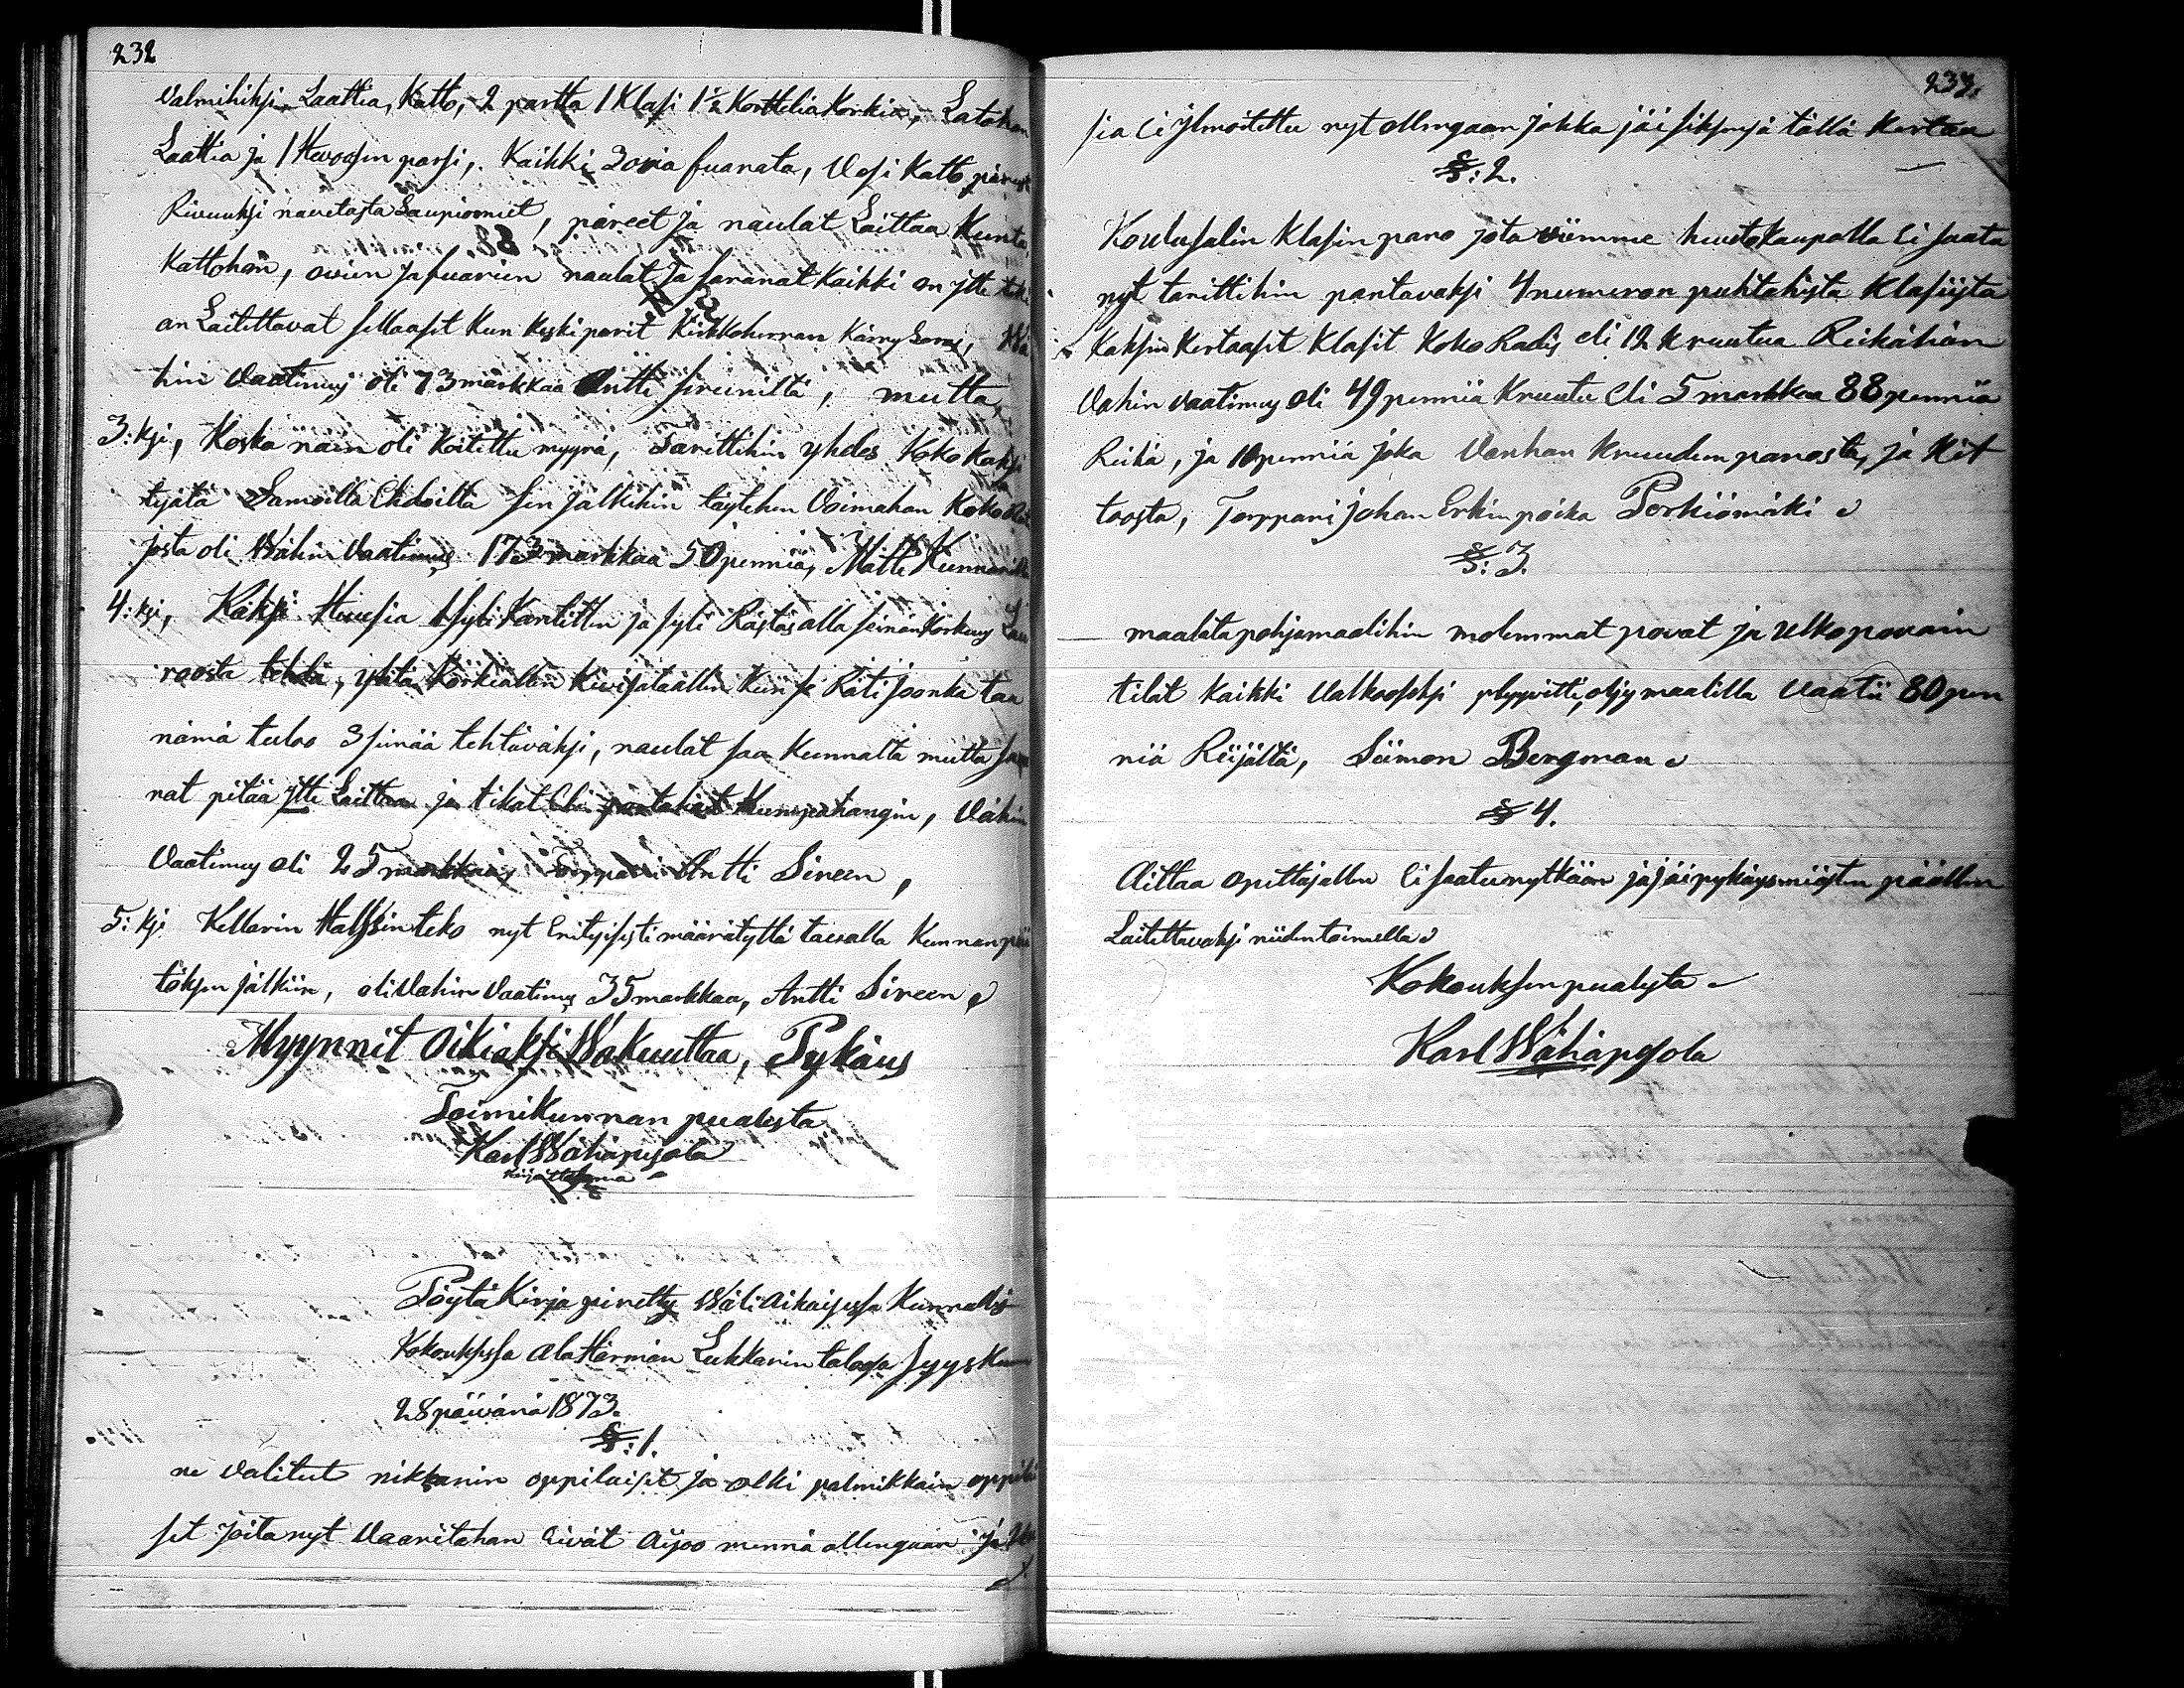 232
Valmihiksi Laattia, Katto, 2 partta 1 Klasi 1½ Korttelia Korkia, Latohon
Laattia ja 1 Hevoosin parsi, Kaikki 3 ovia Suarata, Vesi Katto päreest
Rivuuksi navetasta Saupioomiet, päreet ja naulat Laittaa Kunta
Kattohon, ovien ja Suarien naulat ja saranat Kaikki on itte
an Laitettavat sellaasit Kun Keskiparit Kirkkoherran Kärry
hin Vaatimus oli 73 markkaa Antti Sireenillä, mutta
3:ksi, Koska näin oli Koitettu myyrä, Tarittihin yhdes Koko Kaksi
tystä Samoilla Ehdoilla sen jälkihin täytehen Voimahan Koko
josta oli Wähin Vaatimus 173 markkaa 50 penniä, Matti Kunnarilla
4:ksi, Kaksi Huusia 1 syli Kantittin ja syli Rästäs alla seinän Korkuus Lau
roosta tehdä, yhtä Korkiallen Kivijalaallen Kun se Räti joonka taa
nämä tuloo 3 seinää tehtäväksi, naulat saa Kunnalta mutta sara
nat pitää itte Laittaa ja tikat Eli Kumpahangin, Vähin
Vaatimus oli 25 markkaa, Torppari Antti Sireen,
5:ksi Kellarin Halssin teko nyt Erityisesti määrätyllä tavalla Kunnan pää
töksen jälkiin, oli Vähin Vaatimus 35 markkaa, Antti Sireen
Myynnit Oikiaksi Wakuuttaa, Pykäus
Toimikunnan puolesta
Karl Wähäpesola
Kirjoittajana
Pöytä Kirja piretty Wäli Aikaisessa Kunnallis
Kokouksessa Ala Härmän Lukkarin talossa Syys Kuun
28 päivänä 1873.
§:1.
ne Valitut nikkarin oppilaiset ja olki palmikkoin oppilai
set joita nyt Vaaritahan Eivät Aijoo mennä ollenguan ja
233.
sia Ei ilmoitettu nyt ollengaan jokka jäi siksensä tällä Kertaa
§:2.
Koulusalin Klasin pano jota viimme huuto Kaupalla Ei saatu
nyt tarittihin pantavaksi 4 numeron puhtahista Klasiista
Kaksin Kertaasit Klasit Koko Radis eli 12 Kruutua Reikähän
Vähin vaatimus oli 49 penniä Kruutu Eli 5 markkaa 88 penniä
Reikä, ja 10 penniä joka Vanhan Kruudun panosta, ja Kit
toosta, Torppari Johan Erkinpoika Porkiömäki
§:3.
maalata pohjamaalihin molemmat povat ja Ulkopovain
tilat kaikki Valkooseksi plyyvitti öljymaalilla Vaatii 80 pen
niä Reijältä, Siimon Bergman
§ 4.
Aittaa opettajallen Ei saatu nytkään ja jäi pykäysmiesten päällen
Laitettavaksi niiden toimella
Kokouksen puolesta
Karl Wähäpesola